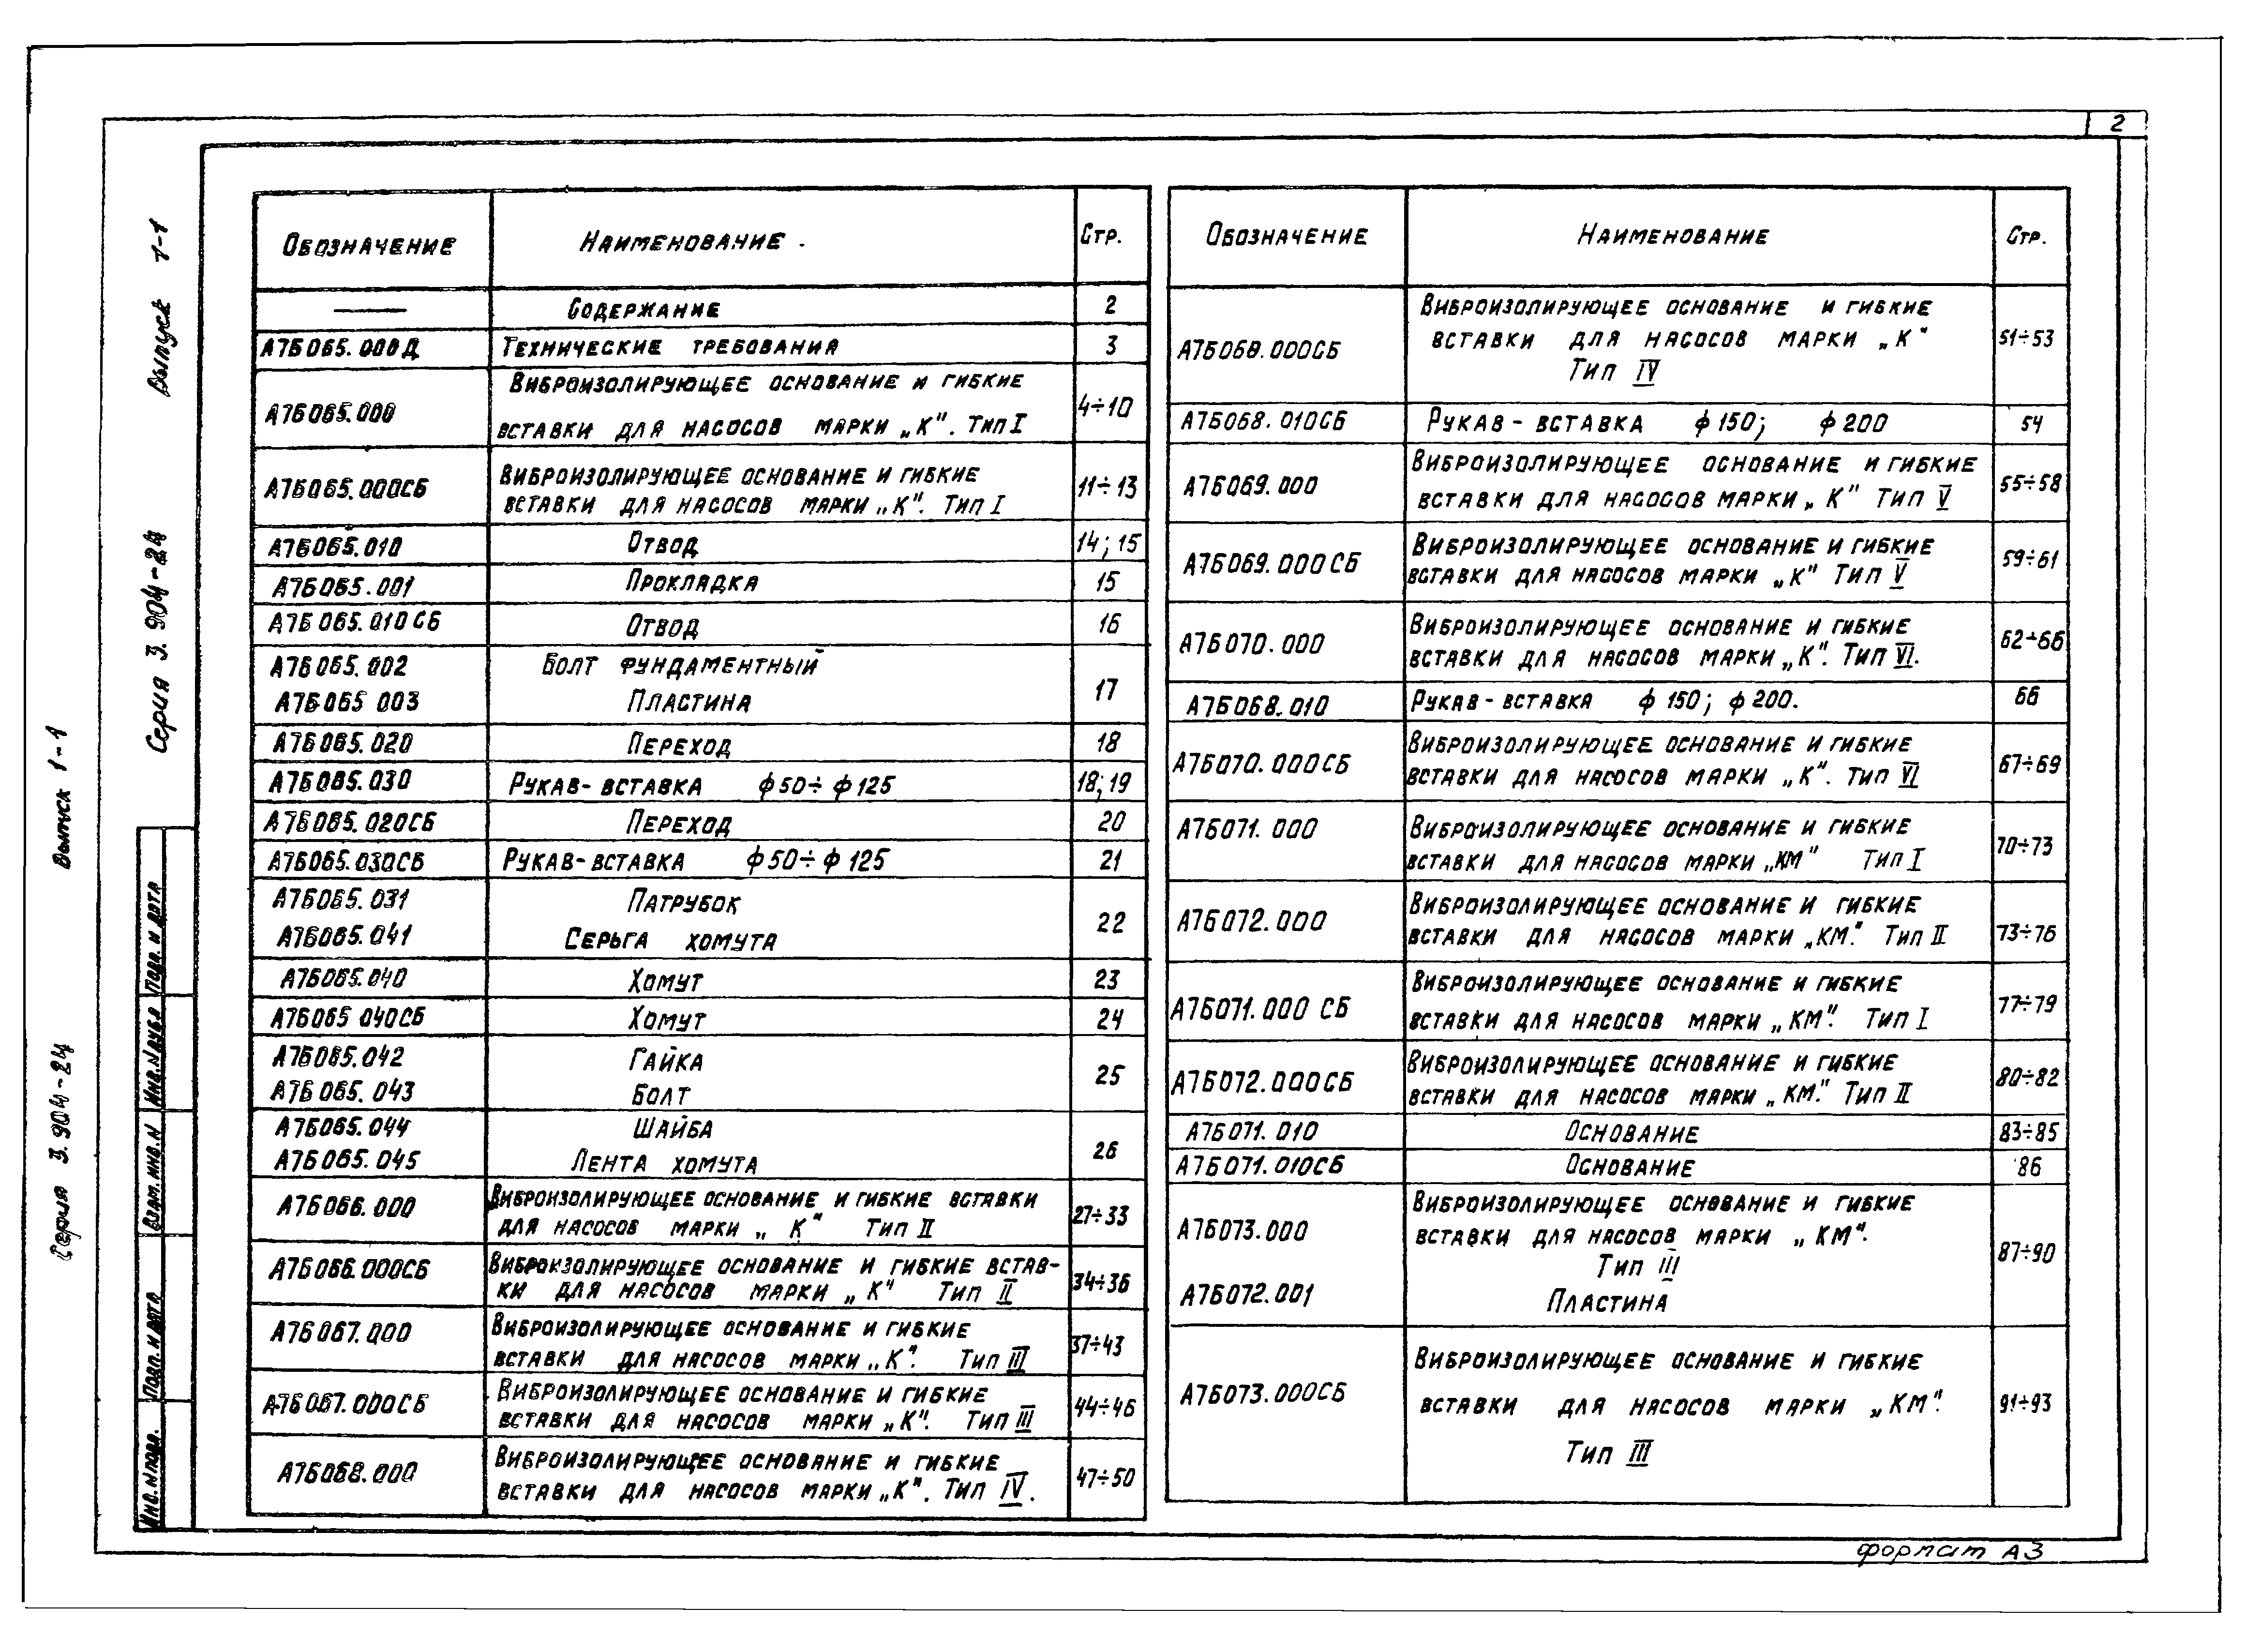 2
Обозначение Наименование Стр.
— Содержание 2
А7Б065.000Д Технические требования 3
А7Б065.000 Виброизолирующее основание и гибкие
вставки для насосов марки „К". Тип I 4÷10
А7Б065.000СБ Виброизолирующее основание и гибкие
вставки для насосов марки „К". Тип I 11÷13
А7Б065.010 Отвод 14; 15
А7Б065.001 Прокладка 15
А7Б065.010СБ Отвод 16
А7Б065.002 Болт фундаментный
А7Б065 003 Пластина 17
А7Б065.020 Переход 18
А7Б065.030 Рукав-вставка ϕ50÷ϕ125 18; 19
А7Б065.020СБ Переход 20
А7Б065.030СБ Рукав-вставка ϕ50÷ϕ125 21
А7Б065.031 Патрубок
А7Б065.041 Серьга хомута 22
А7Б065.040 Хомут 23
А7Б065 040СБ Хомут 24
А7Б065.042 Гайка
А7Б065.043 Болт 25
А7Б065.044 Шайба
А7Б065.045 Лента хомута 26
А7Б066.000 Виброизолирующее основание и гибкие вставки
для насосов марки „К" Тип II 27÷33
А7Б066.000СБ Виброизолирующее основание и гибкие встав-
ки для насосов марки „К" Тип II 34÷36
А7Б067.000 Виброизолирующее основание и гибкие
вставки для насосов марки „К". Тип III 37÷43
А7Б067.000СБ Виброизолирующее основание и гибкие
вставки для насосов марки „К". Тип III 44÷46
А7Б068.000 Виброизолирующее основание и гибкие
вставки для насосов марки „К". Тип IV. 47÷50
Обозначение Наименование Стр.
А7Б068.000СБ Виброизолирующее основание и гибкие
вставки для насосов марки „К"
Тип IV 51÷53
А7Б068.010СБ Рукав-вставка ϕ150; ϕ200 54
А7Б069.000 Виброизолирующее основание и гибкие
вставки для насосов марки „К" Тип V 55÷58
А7Б069.000СБ Виброизолирующее основание и гибкие
вставки для насосов марки „К" Тип V 59÷61
А7Б070.000 Виброизолирующее основание и гибкие
вставки для насосов марки „К". Тип VI. 62÷66
А7Б068.010 Рукав-вставка ϕ150; ϕ200. 66
А7Б070.000СБ Виброизолирующее основание и гибкие
вставки для насосов марки „К". Тип VI 67÷69
А7Б071.000 Виброизолирующее основание и гибкие
вставки для насосов марки „КМ" Тип I 70÷73
А7Б072.000 Виброизолирующее основание и гибкие
вставки для насосов марки „КМ". Тип II 73÷76
А7Б071.000 СБ Виброизолирующее основание и гибкие
вставки для насосов марки „КМ". Тип I 77÷79
А7Б072.000СБ Виброизолирующее основание и гибкие
вставки для насосов марки „КМ". Тип II 80÷82
А7Б071.010 Основание 83÷85
А7Б071.010СБ Основание 86
А7Б073.000 Виброизолирующее основание и гибкие
вставки для насосов марки „КМ".
Тип III 87÷90
А7Б072.001 Пластина
А7Б073.000СБ Виброизолирующее основание и гибкие
вставки для насосов марки „КМ". 91÷93
Тип III
Серия 3.904-24 Выпуск 1-1
Серия 3.904-24 Выпуск 1-1
Инв.Nподл. Подп. и дата Взам.инв.N Инв.Nдубл Подп. и дата
формат А3